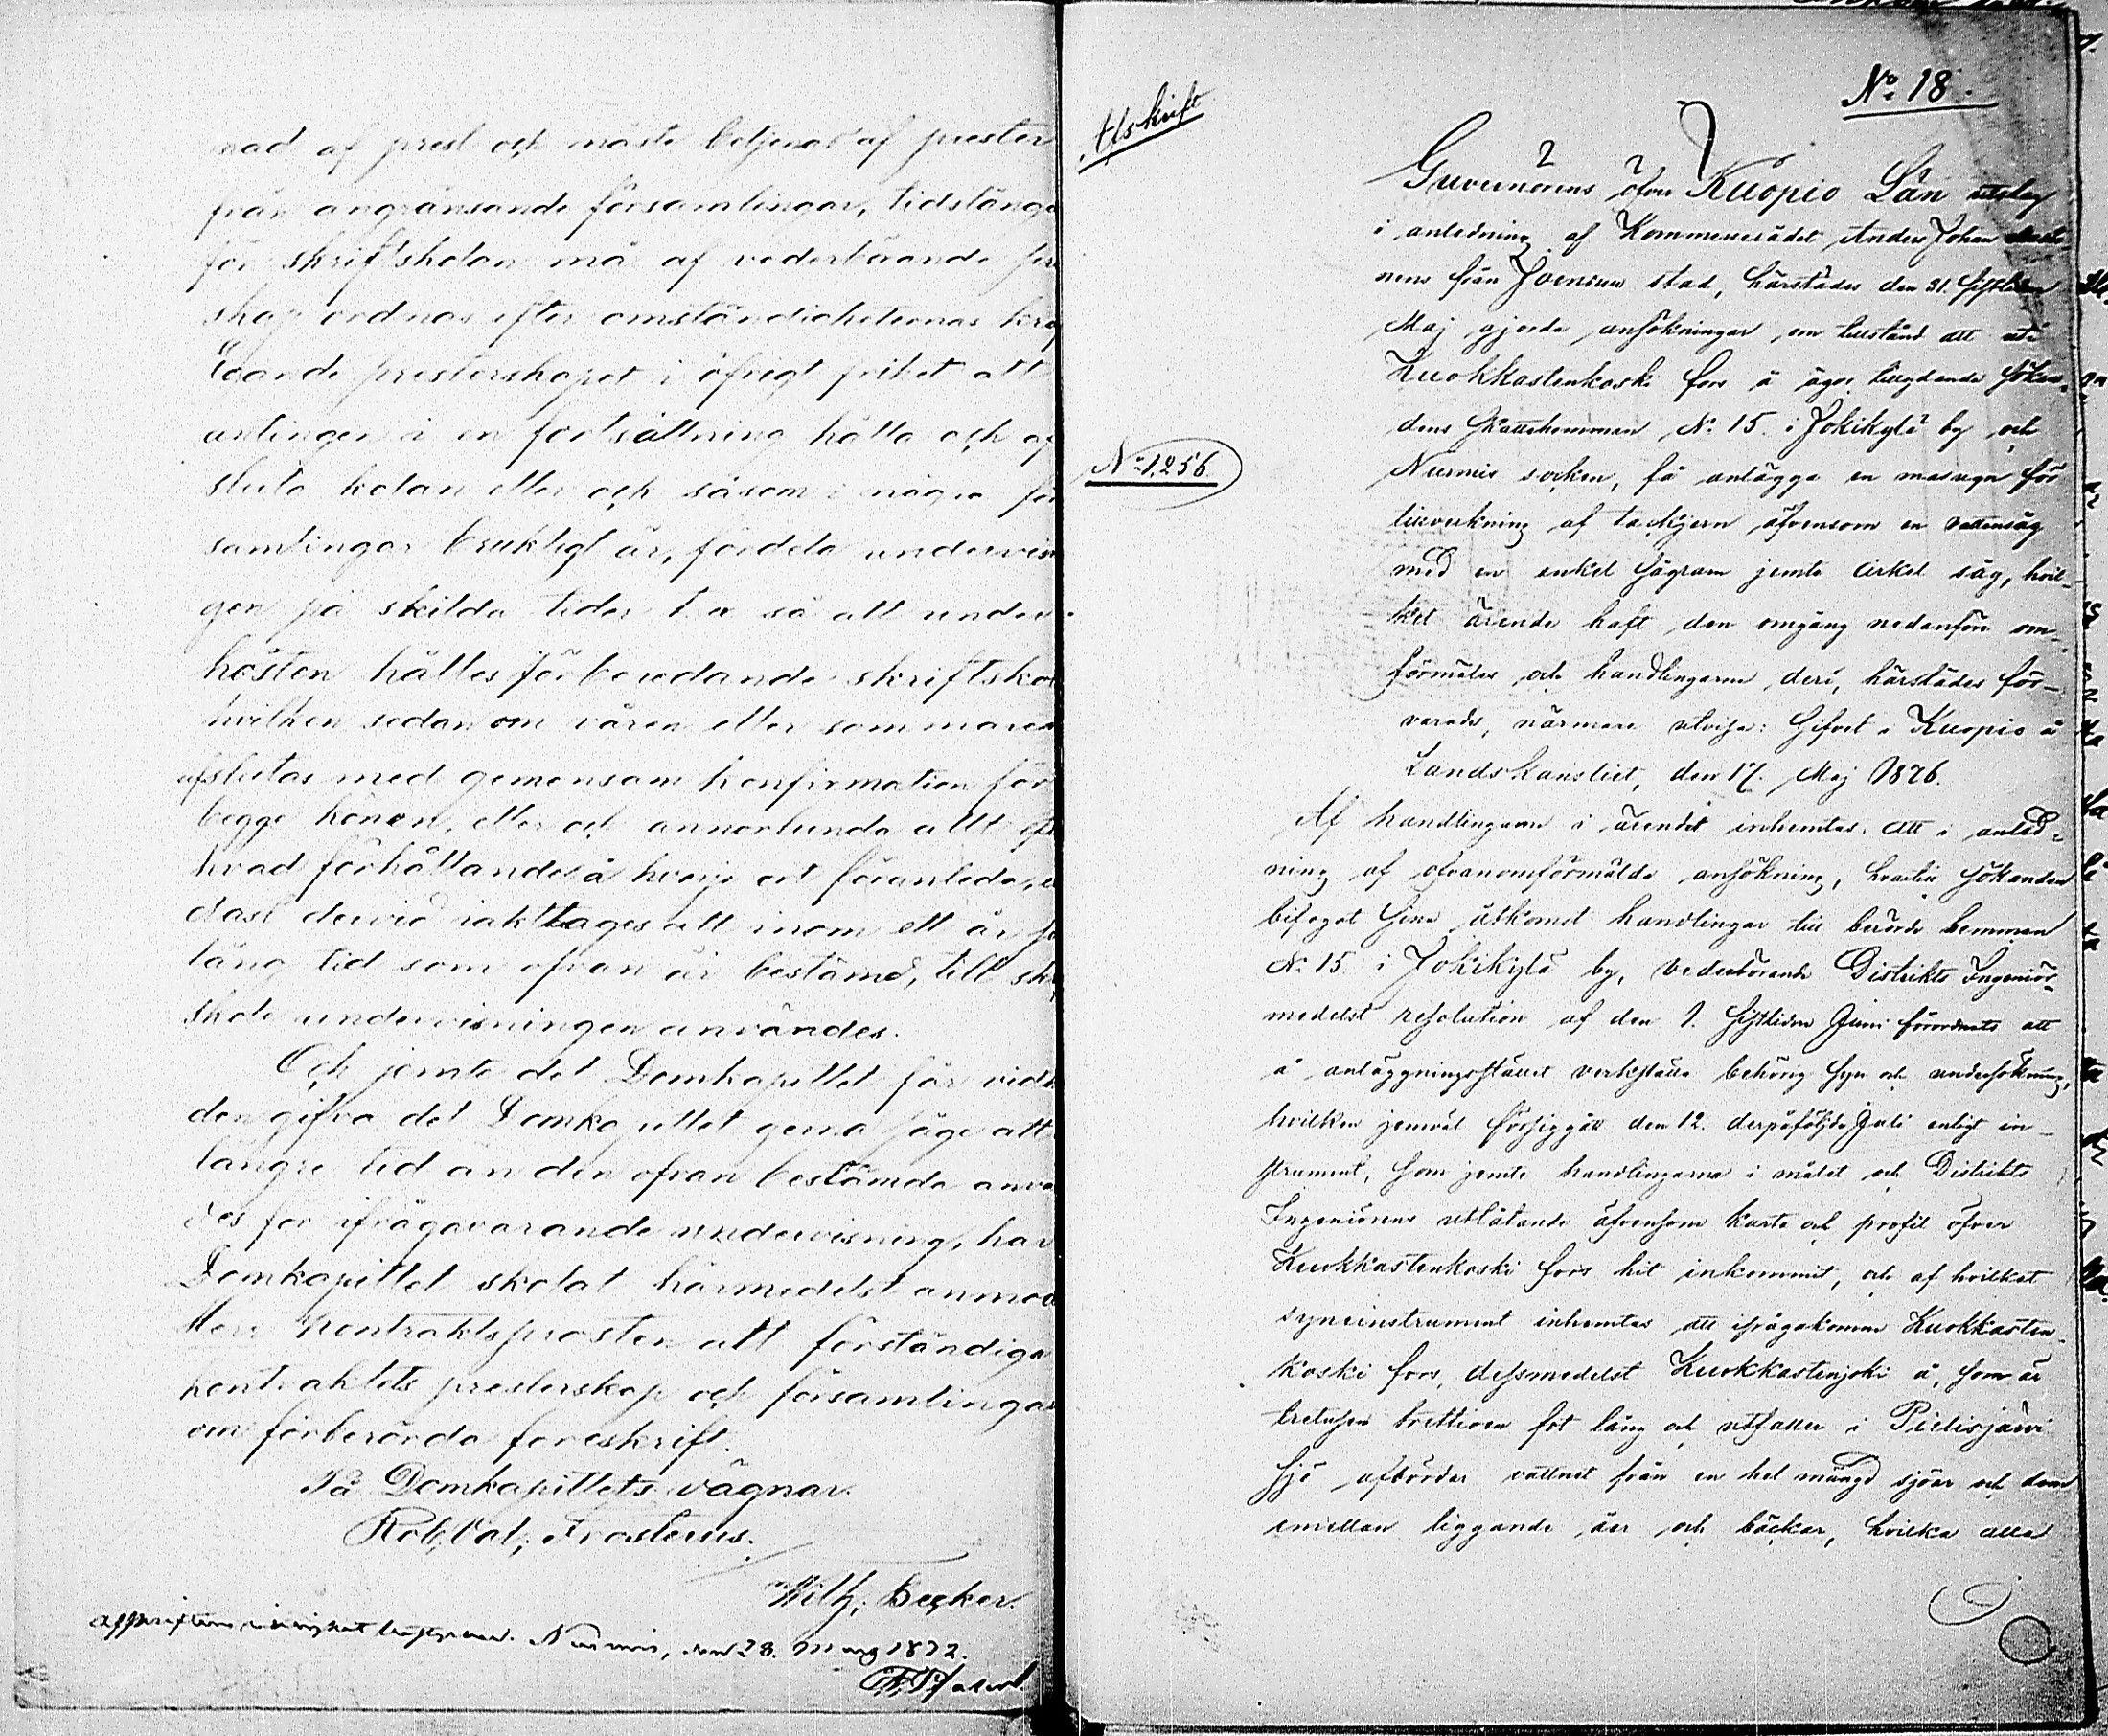 nad af prest och måste betjenas af prester
från angränsande församlingar, tidslängd
för skriftskolan må af vederbörande pre
skap ordnas efter omständigheternas kraf
Egande presterskapet i öfrigt frihet att
antingen i en fortsättning hålla och af
sluta kolan eller och såsom i några för
samlingar brukligt är, fördela undervisn
gen på skilda tider t. ex så att under
hösten hålles förberedande skriftskol
hvilken sedan om våren eller sommaren
afslutas med gemensam konfirmation för
begge könen, eller och annorlunda allt eft
hvad förhållandet å hvarje ort föranleda, e
dast dervid iakttages att inom ett år så
lång tid som ofvan är bestämd, till skr
skole undervisningen användes.
Och jemte det Domkapitlet får vid
den gifva det Domkapitlet gerna såge att
längre tid än den ofvan bestämda anvä
des för ifrågavarande undervisning, har
Domkapitlet skolat härmedelst anmod
Herr Kontraktsprosten att förständiga
kontraktets presterskap och församlingar
om förberörda föreskrift.
På Domkapitlets vägnar.
Rob. Val. Frosterus.
Wilh. Becker.
Afskriftens riktighet Nurmis, den 28. Maj 1872.
No 18.
Afskrift
Guvernörens öfver Kuopio Län utslag
i anledning af Kommerserådet Anders Johan
nens från Joensuu stad, härstädes den 31. sistliden
Maj gjorda ansökningar om tillstånd att uti
Kuokkastenkoski fors å ägor tillydande söken-
dens skattehemman No 15. i Jokikylä by och
No 1,256
Nurmis socken, få anlägga en masugn för
tillverkning af tackjern äfvensom en vattensåg
med en enkel sågram jemte cirkel såg, hvil-
ket ärende haft den omgång nedanföre om-
förmäles och handlingarne deri, härstädes för-
varade, närmare utvisa: Gifvet i Kuopio å
Landskansliet, den 17. Maj 1876.
Af handlingarne i ärendet inhemtas: att i anled-
ning af ofvanomförmälde ansökning, hvartill sökanden
bifogat sina åtkomst handlingar till berörde hemman
No 15. i Jokikylä by, vederbörande Distrikts Ingeniör
medelst resolution af den 9. sistlidne Juni förordnats att
å anläggningsstället verkställa behörig syn och undersökning,
hvilken jemväl försiggått den 12. derpåföljde Juli enligt in-
strument, som jemte handlingarne i målet och Distrikts
Ingeniörens utlåtande äfvensom karta och profil öfver
Kuokkastenkoski fors hit inkommit, och af hvilket
syneinstrument inhemtas att ifrågakomne Kuokkasten-
koski fors, dessmedelst Kuokkastenjoki å, som är
tretusen trettioen fot lång och utfaller i Pielisjärvi
sjö afbördar vattnet från en hel mängd sjöar och dem
emellan liggande åar och bäckar, hvilka alla